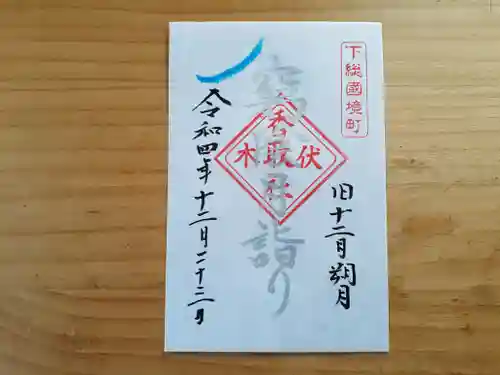 下総國境町
旧十二月朔月
窮陰月詣り
香取社
伏木
令和四年十二月二十三日